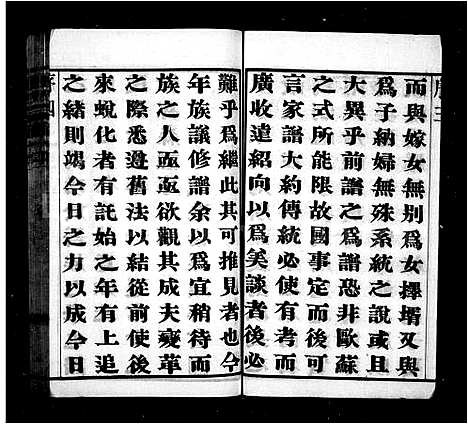 序三
而與嫁女無別為女擇壻又與
為子納婦無殊系統之說或且
大異乎前譜之為譜恐非歐蘇
之式所能限故國事定而修譜
言家譜大約傳統必使有考而
廣收遠紹向以為笑談者後必
難乎為繼此其可推見者也今
年族議修譜余以為宜稍待而
族之人亟亟欲觀其成夫變革
之際悉遵舊法以結從前使後
來蛻化者有託始之年有上追
之緒則竭今日之力以成今日
序四